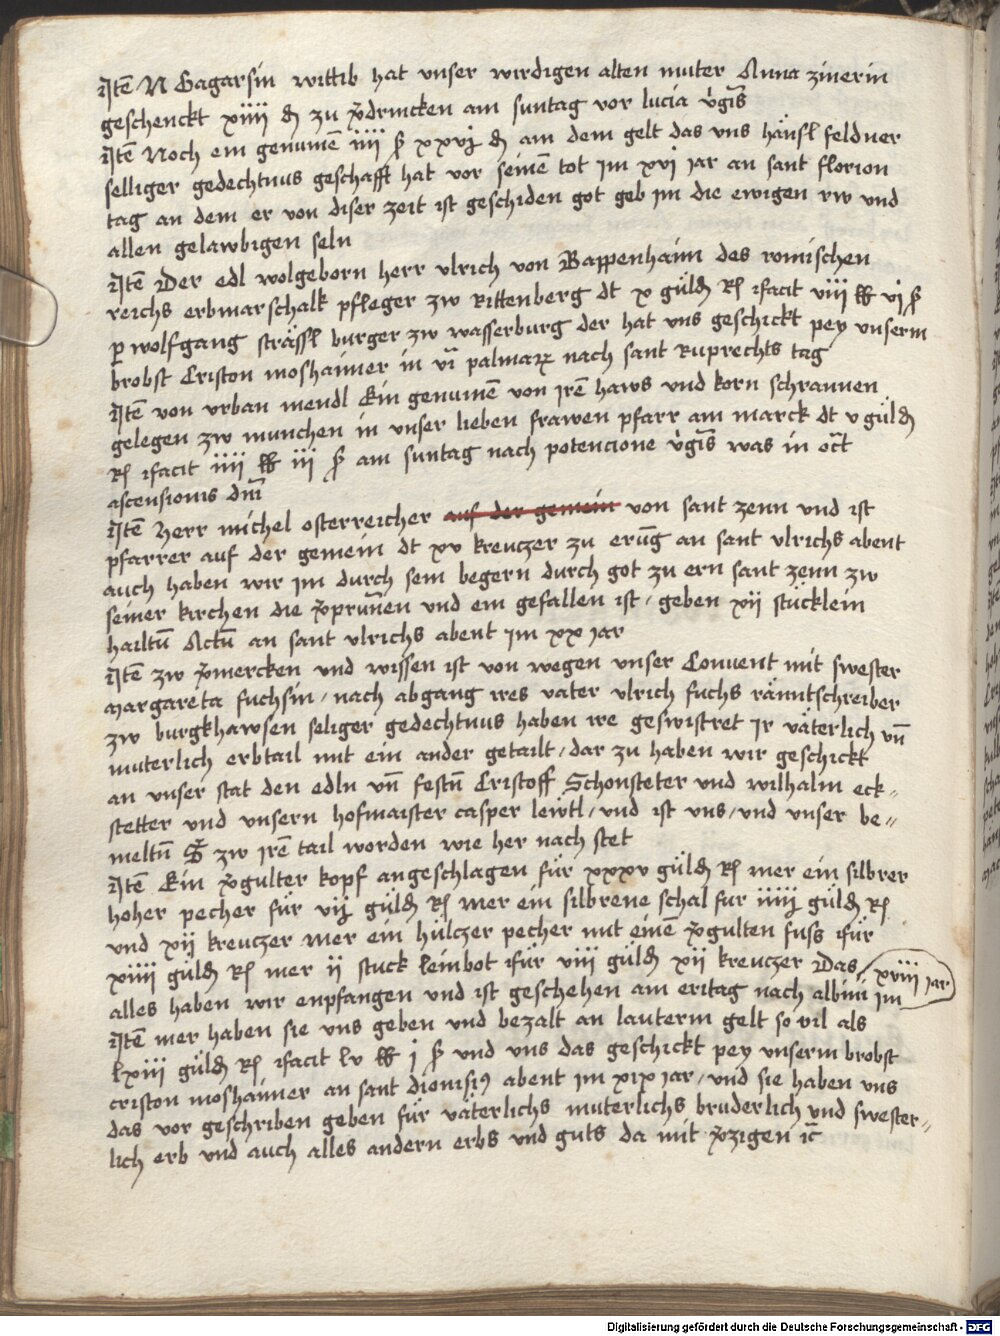 Itē N Gagarsin wittib hat unser wirdigen alten muter Anna zinerin
geschenckt xiiii ₰ zu v̄drincken am suntag vor lucia v̄gīs
Itē Noch ein genumē iiii ß xxvj ₰ am dem gelt das uns hänsl feldner
selliger gedechtnus geschafft hat vor seinē tot im xvi jar an sant florion
tag an dem er von diser zeit ist geschiden got geb im die ewigen rw und
allen gelawbigen seln
Itē Der edl wolgeborn herr ulrich von Bappenhaim des romischen
reichs erbmarschalk pfleger zw Rittenberg dt x gulđ Rł ꝛfacit viii ℔ vj ß
ꝑ wolfgang strässl burger zw wasserburg der hat uns geschickt pey unserm
brobst Criston moshaimer in vī palmarꝝ nach sant Ruprechts tag
Itē von urban mendl Ein genumē von irē haws und korn schrannen
gelegen zw munchen in unser lieben frawen pfarr am marck dt v gulđ
Rł ꝛfacit iiii ℔ iii ß am suntag nach potencione v̄gīs was in oc̄t
ascensionis dn̄i
Itē herr michel osterreicher auf der gemein von sant zenn und ist
pfarrer auf der gemein dt xv kreuczer zu erūg an sant ulrichs abent
auch haben wir im durch sein begern durch got zu ern sant zenn zw
seiner kirchen die v̄prun̄en und ein gefallen ist / geben xii stücklein
hailtū Actū an sant ulrichs abent im xx jar
Itē zw v̄mercken und wissen ist von wegen unser Convent mit swester
margareta fuchsin / nach abgang ires vater ulrich fuchs ränntschreiber
zw burgkhawsen seliger gedechtnus haben ire geswistret ir väterlich un̄
muterlich erbtail mit ein ander getailt / dar zu haben wir geschickt
an unser stat den edln un̄ festn̄ Cristoff Schonsteter und wilhalm eck⸗
stetter und unsern hofmaister casper lewtl / und ist uns / und unser be⸗
meltn̄ S̄ zw irē tail worden wie her nach stet
Itē Ein v̄gulter kopf angeschlagen für xxxv gulđ Rł mer ein silbrer
hoher pecher für vij gulđ Rł mer ein silbrene schal fur iiiij gulđ Rł
und xij kreuczer mer ein hülczer pecher mit einē v̄gulten fuss ꝛfür
xiiii gulđ Rł mer ii stuck leinbot ꝛfür viii gulđ xii kreuczer Das
alles haben wir enpfangen und ist geschehen am eritag nach albini im xviii jar
Itē mer haben sie uns geben und bezalt an lauterm gelt so vil als
lxiii gulđ Rł ꝛfacit lv ℔ i ß und uns das geschickt pey unserm brobst
criston moshaimer an sant dionisiꝰ abent im xix jar / und sie haben uns
das vor geschriben geben für väterlichs muterlichs bruderlich und swester⸗
lich erb und auch alles andern erbs und guts da mit v̄zigen ꝛc̄
Digitalisierung gefördert durch die Deutsche Forschungsgemeinschaft - DFG